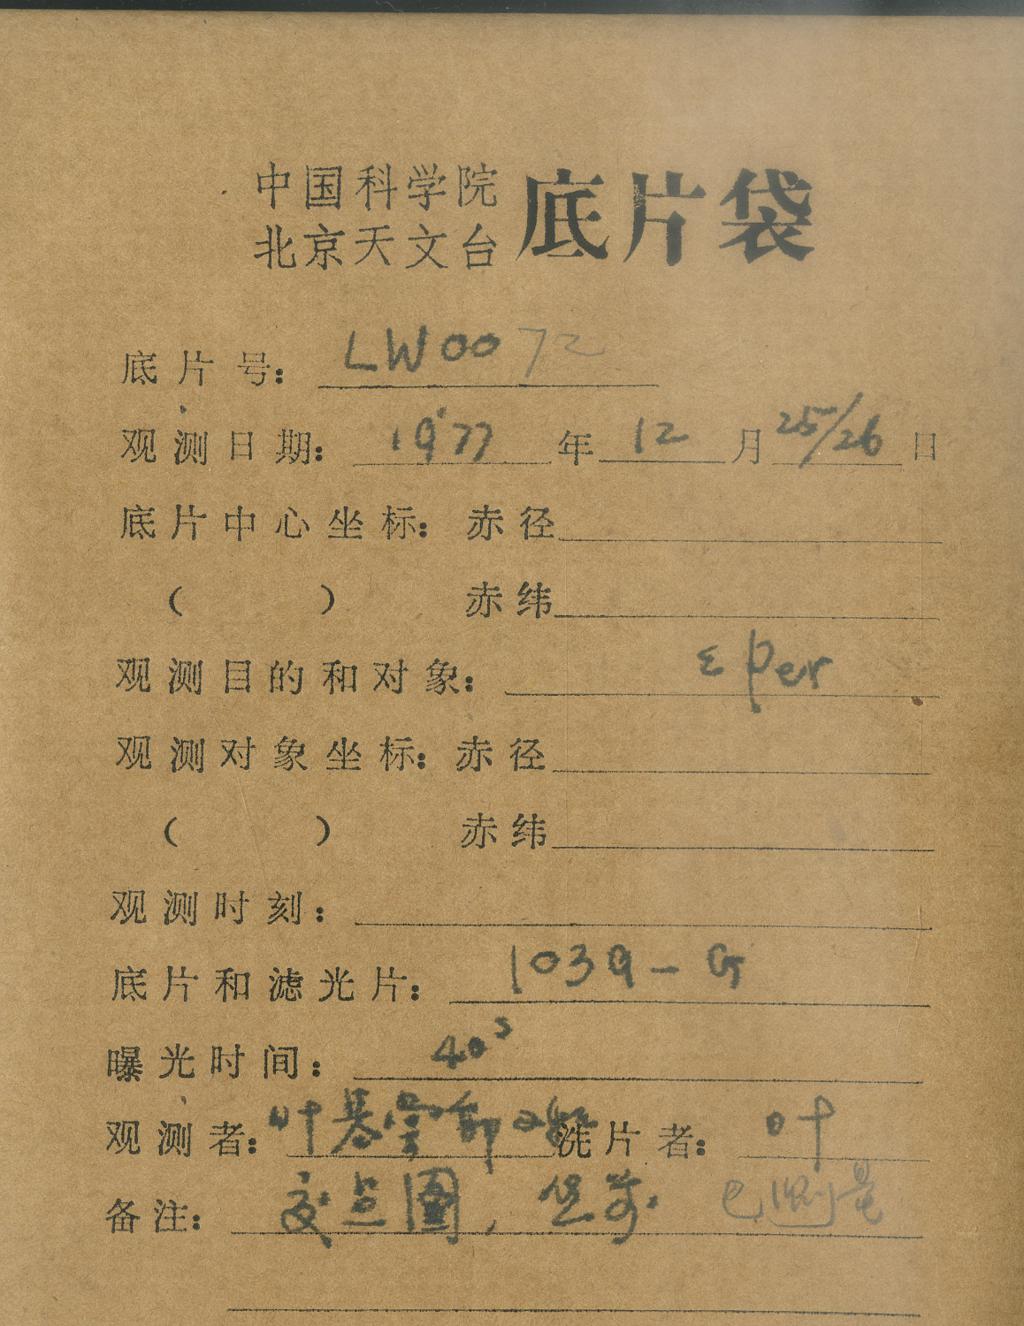 中国科学院
北京天文台 底片袋
底片号: LW0072
观测日期: 1977年12月25/26日
底片中心坐标: 赤径
( ) 赤纬
观测目的和对象: ε per
观测对象坐标: 赤径
( ) 赤纬
观测时刻:
底片和滤光片: 103a-G
曝光时间: 40s
观测者: 叶 洗片者: 叶
备注: 点圆, 已测量